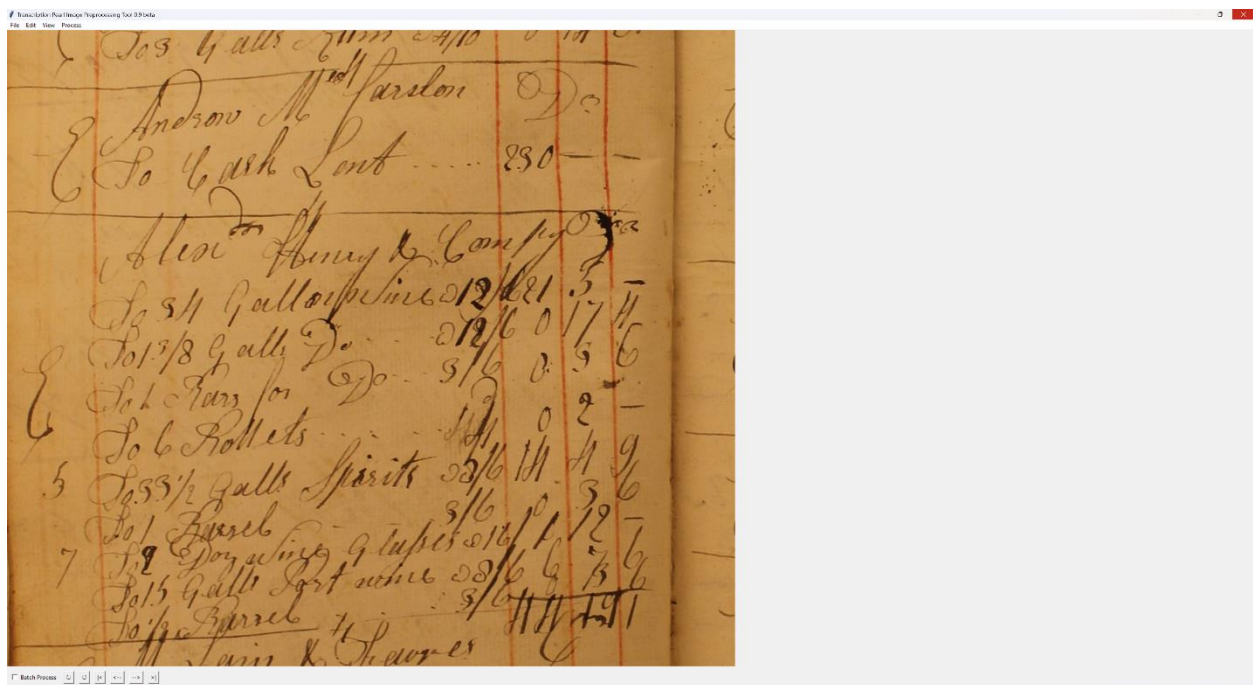 Transcription Pearl Image Preprocessing Tool 0.9 beta
File Edit View Process
To 3 Galls Rum 0
Andrew McFarslon Do
To Cash Lent ..... 230 — —
Alexr Henry & Compy Do
To 34 Gallons Wine @ 12/6 21 5 —
To 1 3/8 Galls Do .. @ 12/6 0 17 4
To 1 Barr for Do .. 3/6 0 3 6
To 6 Rollets ..... 4d 0 2 —
5 To 33 1/2 Galls Spirits @ 8/6 14 4 9
To 1 Barrel 3/6 0 3 6
7 To 2 Doz wine Glasses @ 16/ 1 12 —
To 15 Galls Port wine @ 8/6 6 7 6
To 1/2 Barrel 3/6
44 19 1
&
Batch Process